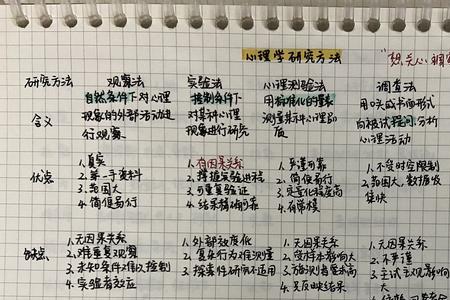 心理学研究方法
研究方法 观察法 实验法 心理测验法 调查法
含义 自然条件下对心理现象的外部活动进行观察 控制条件下对某种心理现象进行研究 用标准化的量表测量某种心理 质 用口头或书面形式向被试提问,分析心理活动
优点
1.真实
2.第一手资料
3.范围大
4.简便易行
1.有因果关系
2.掌握实验进程
3.可重复验证
4.结果精确可靠
1.严谨可靠
2.简便易行
3.定量化程度高
4.有常模
1.不受时空限制
2.范围大,数据收集快
缺点
1.无因果关系
2.难重复观察
3.未知条件难以控制
4.实验者效应
1.外部效度低
2.复杂行为难测量
3.探索性研究不适用
1.无因果关系
2.受样本影响大
3.施测者要求高
4.只反映结果
1.无因果关系
2.不严谨
3.主试主观影响大